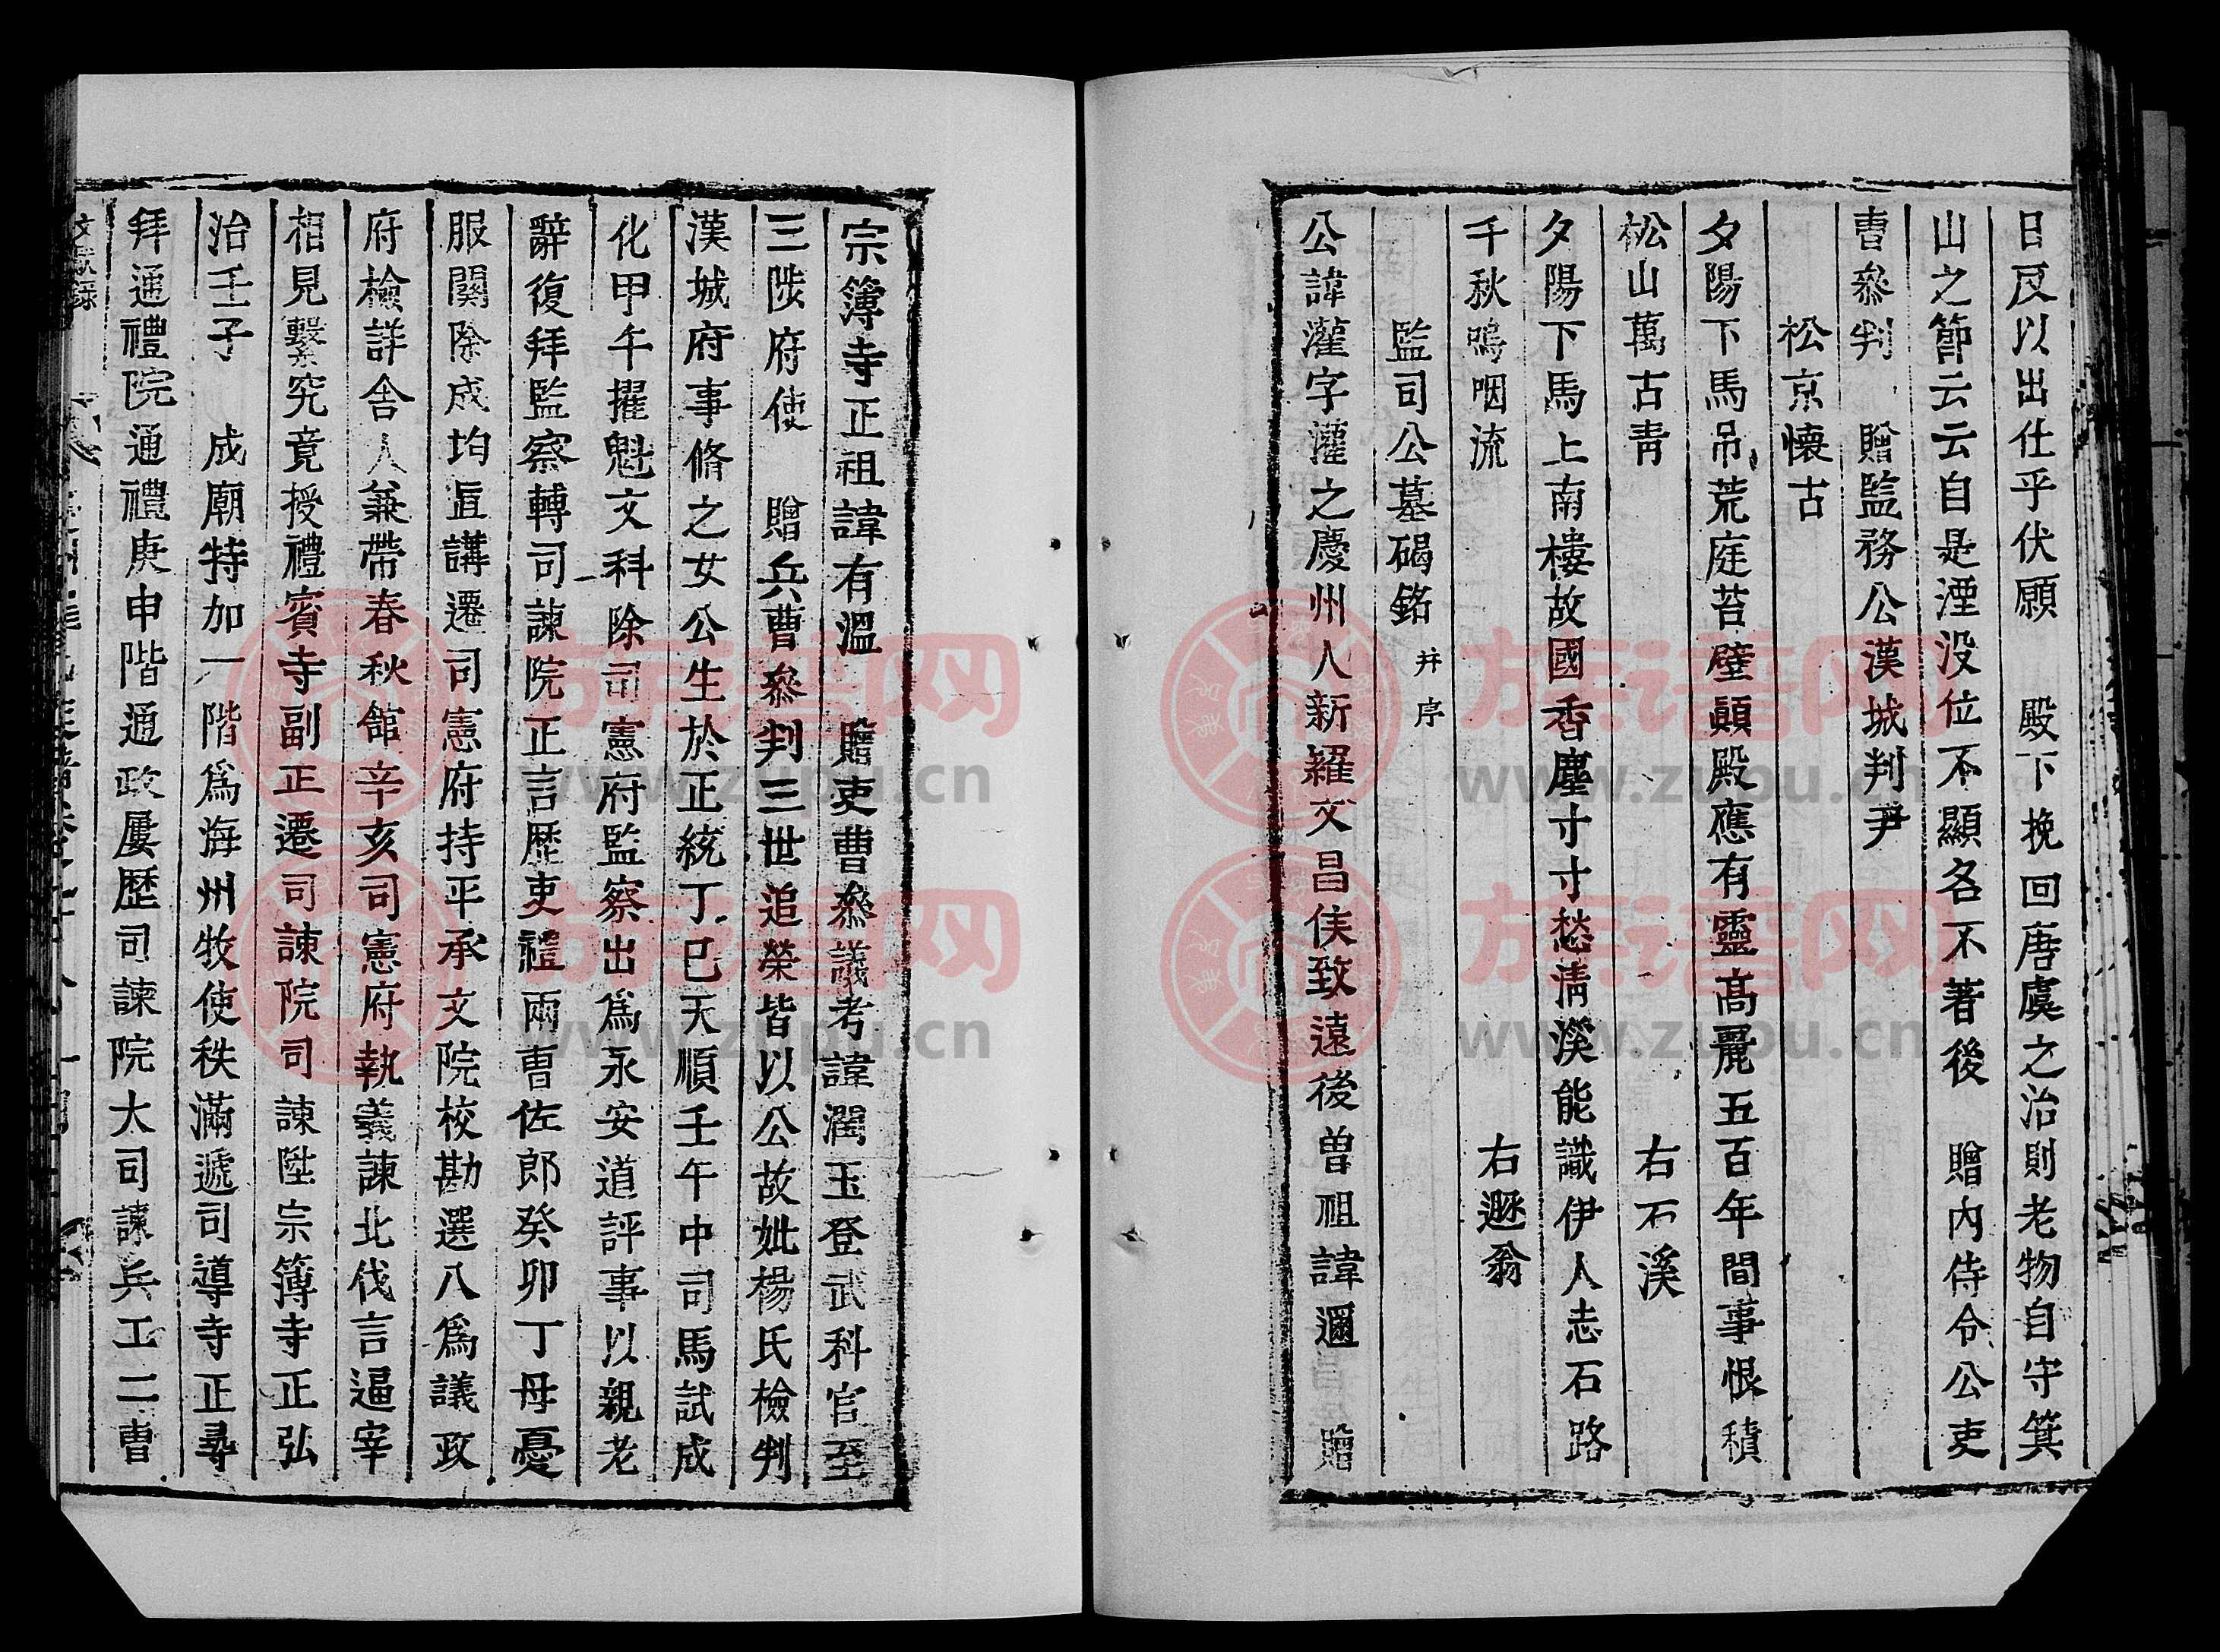 日反以出仕乎伏願　殿下挽回唐虞之治則老物自守箕
山之節云云自是湮没位不顯名不著後　贈內侍令公吏
曹叅判　贈監務公漢城判尹
松京懷古
夕陽下馬吊荒庭苔壁顛殿應有靈高麗五百年間事恨積
松山萬古青　右石溪
夕陽下馬上南樓故國香塵寸寸愁淸溪能識伊人志石路
千秋嗚咽流　右遯翁
監司公墓碣銘 并序
公諱灌字灌之慶州人新羅文昌侯致遠後曽祖諱邇　贈
宗簿寺正祖諱有溫　贈吏曹叅議考諱潤玉登武科官至
三陟府使　贈兵曹叅判三世追榮皆以公故妣楊氏檢判
漢城府事脩之女公生於正統丁巳天順壬午中司馬試成
化甲午擢魁文科除司憲府監察出爲永安道評事以親老
辭復拜監察轉司諫院正言歷吏禮兩曹佐郎癸卯丁母憂
服闋除成均直講遷司憲府持平承文院校勘選入爲議政
府檢詳舍人兼帶春秋館辛亥司憲府執義諫北伐言逼宰
相見繫究竟授禮賓寺副正遷司諫院司諫陞宗簿寺正弘
治壬子　成廟特加一階爲海州牧使秩滿遞司導寺正尋
拜通禮院通禮庚申階通政屢歷司諫院大司諫兵工二曹
文獻錄
族谱网
www.zupu.cn
族谱网
www.zupu.cn
族谱网
www.zupu.cn
族谱网
www.zupu.cn